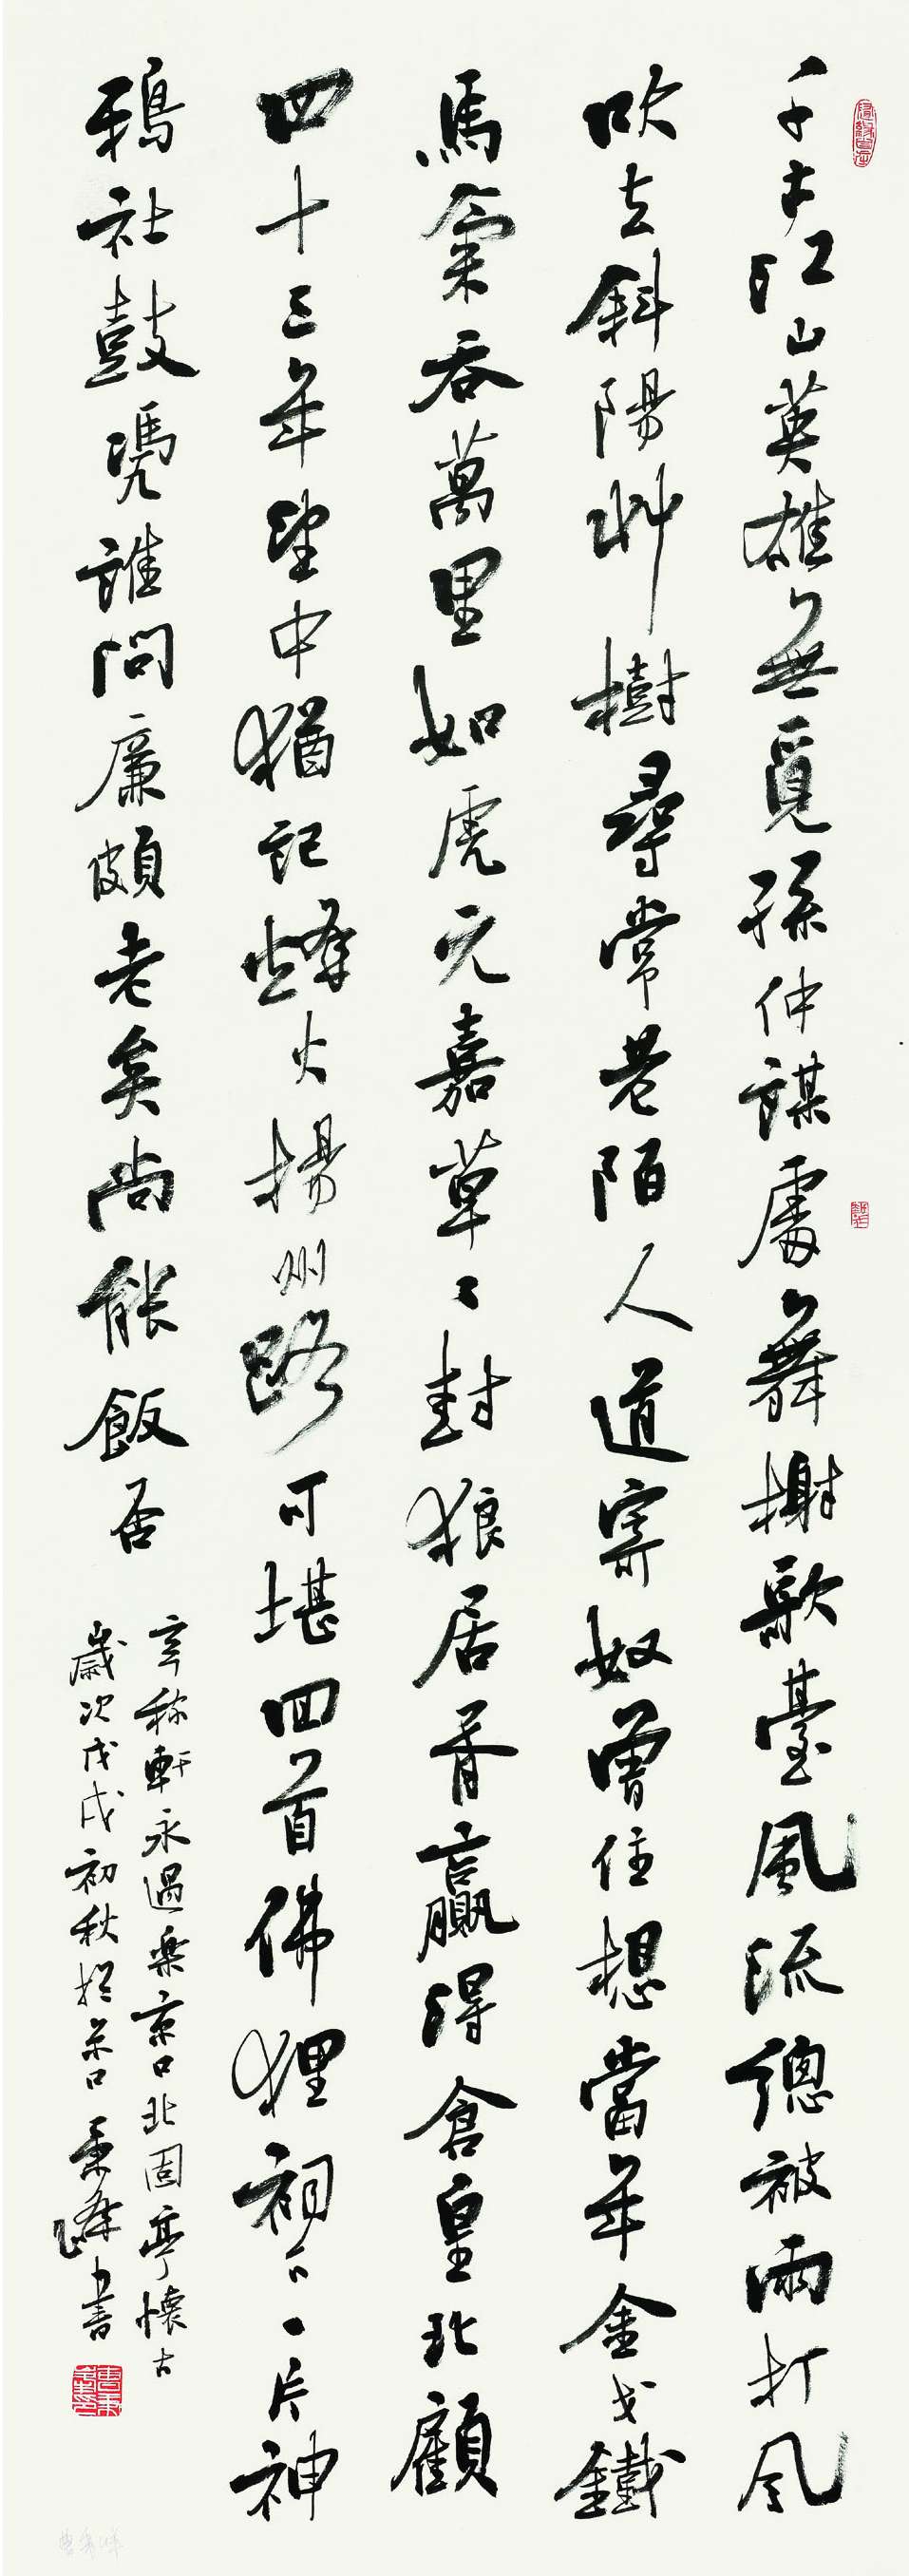 千古江山英雄無覓孫仲謀處舞榭歌臺風流總被雨打風
吹去斜陽艸樹尋常巷陌人道寄奴曾住想當年金戈鐵
馬氣吞萬里如虎元嘉草〻封狼居胥贏得倉皇北顧
四十三年望中猶記烽火揚州路可堪回首佛狸祠下一片神
鴉社鼓憑誰問廉頗老矣尚能飯否
辛稼軒永遇樂京口北固亭懷古
歲次戊戌初秋於京口秉峰書